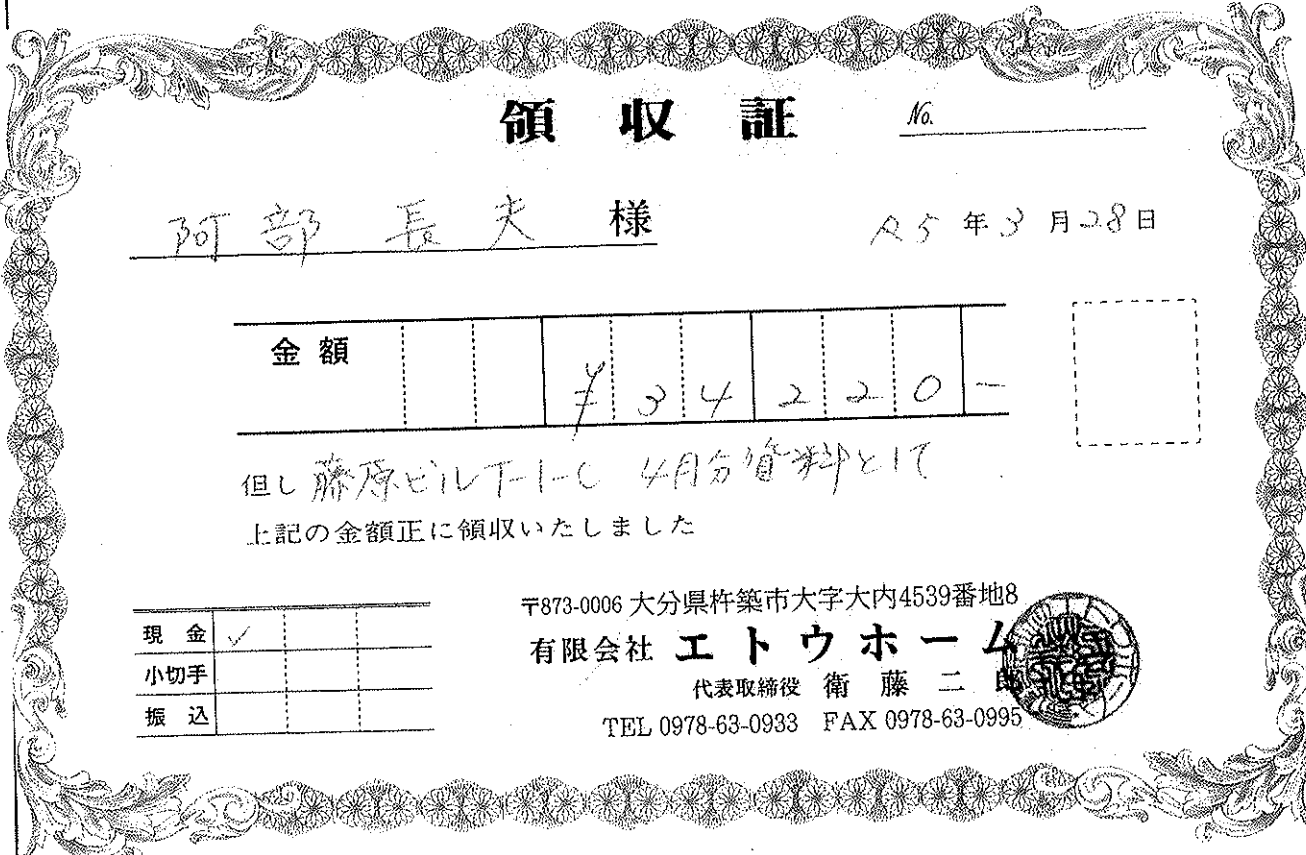 領収証 No.
阿部 長夫 様
R5年3月28日
金額 ¥34220-
但し 藤原ビルT-1-C 4月分賃料として
上記の金額正に領収いたしました
〒873-0006 大分県杵築市大字大内4539番地8
有限会社 エトウホーム
代表取締役 衛藤二郎
TEL 0978-63-0933 FAX 0978-63-0995
現金 ✓
小切手
振込